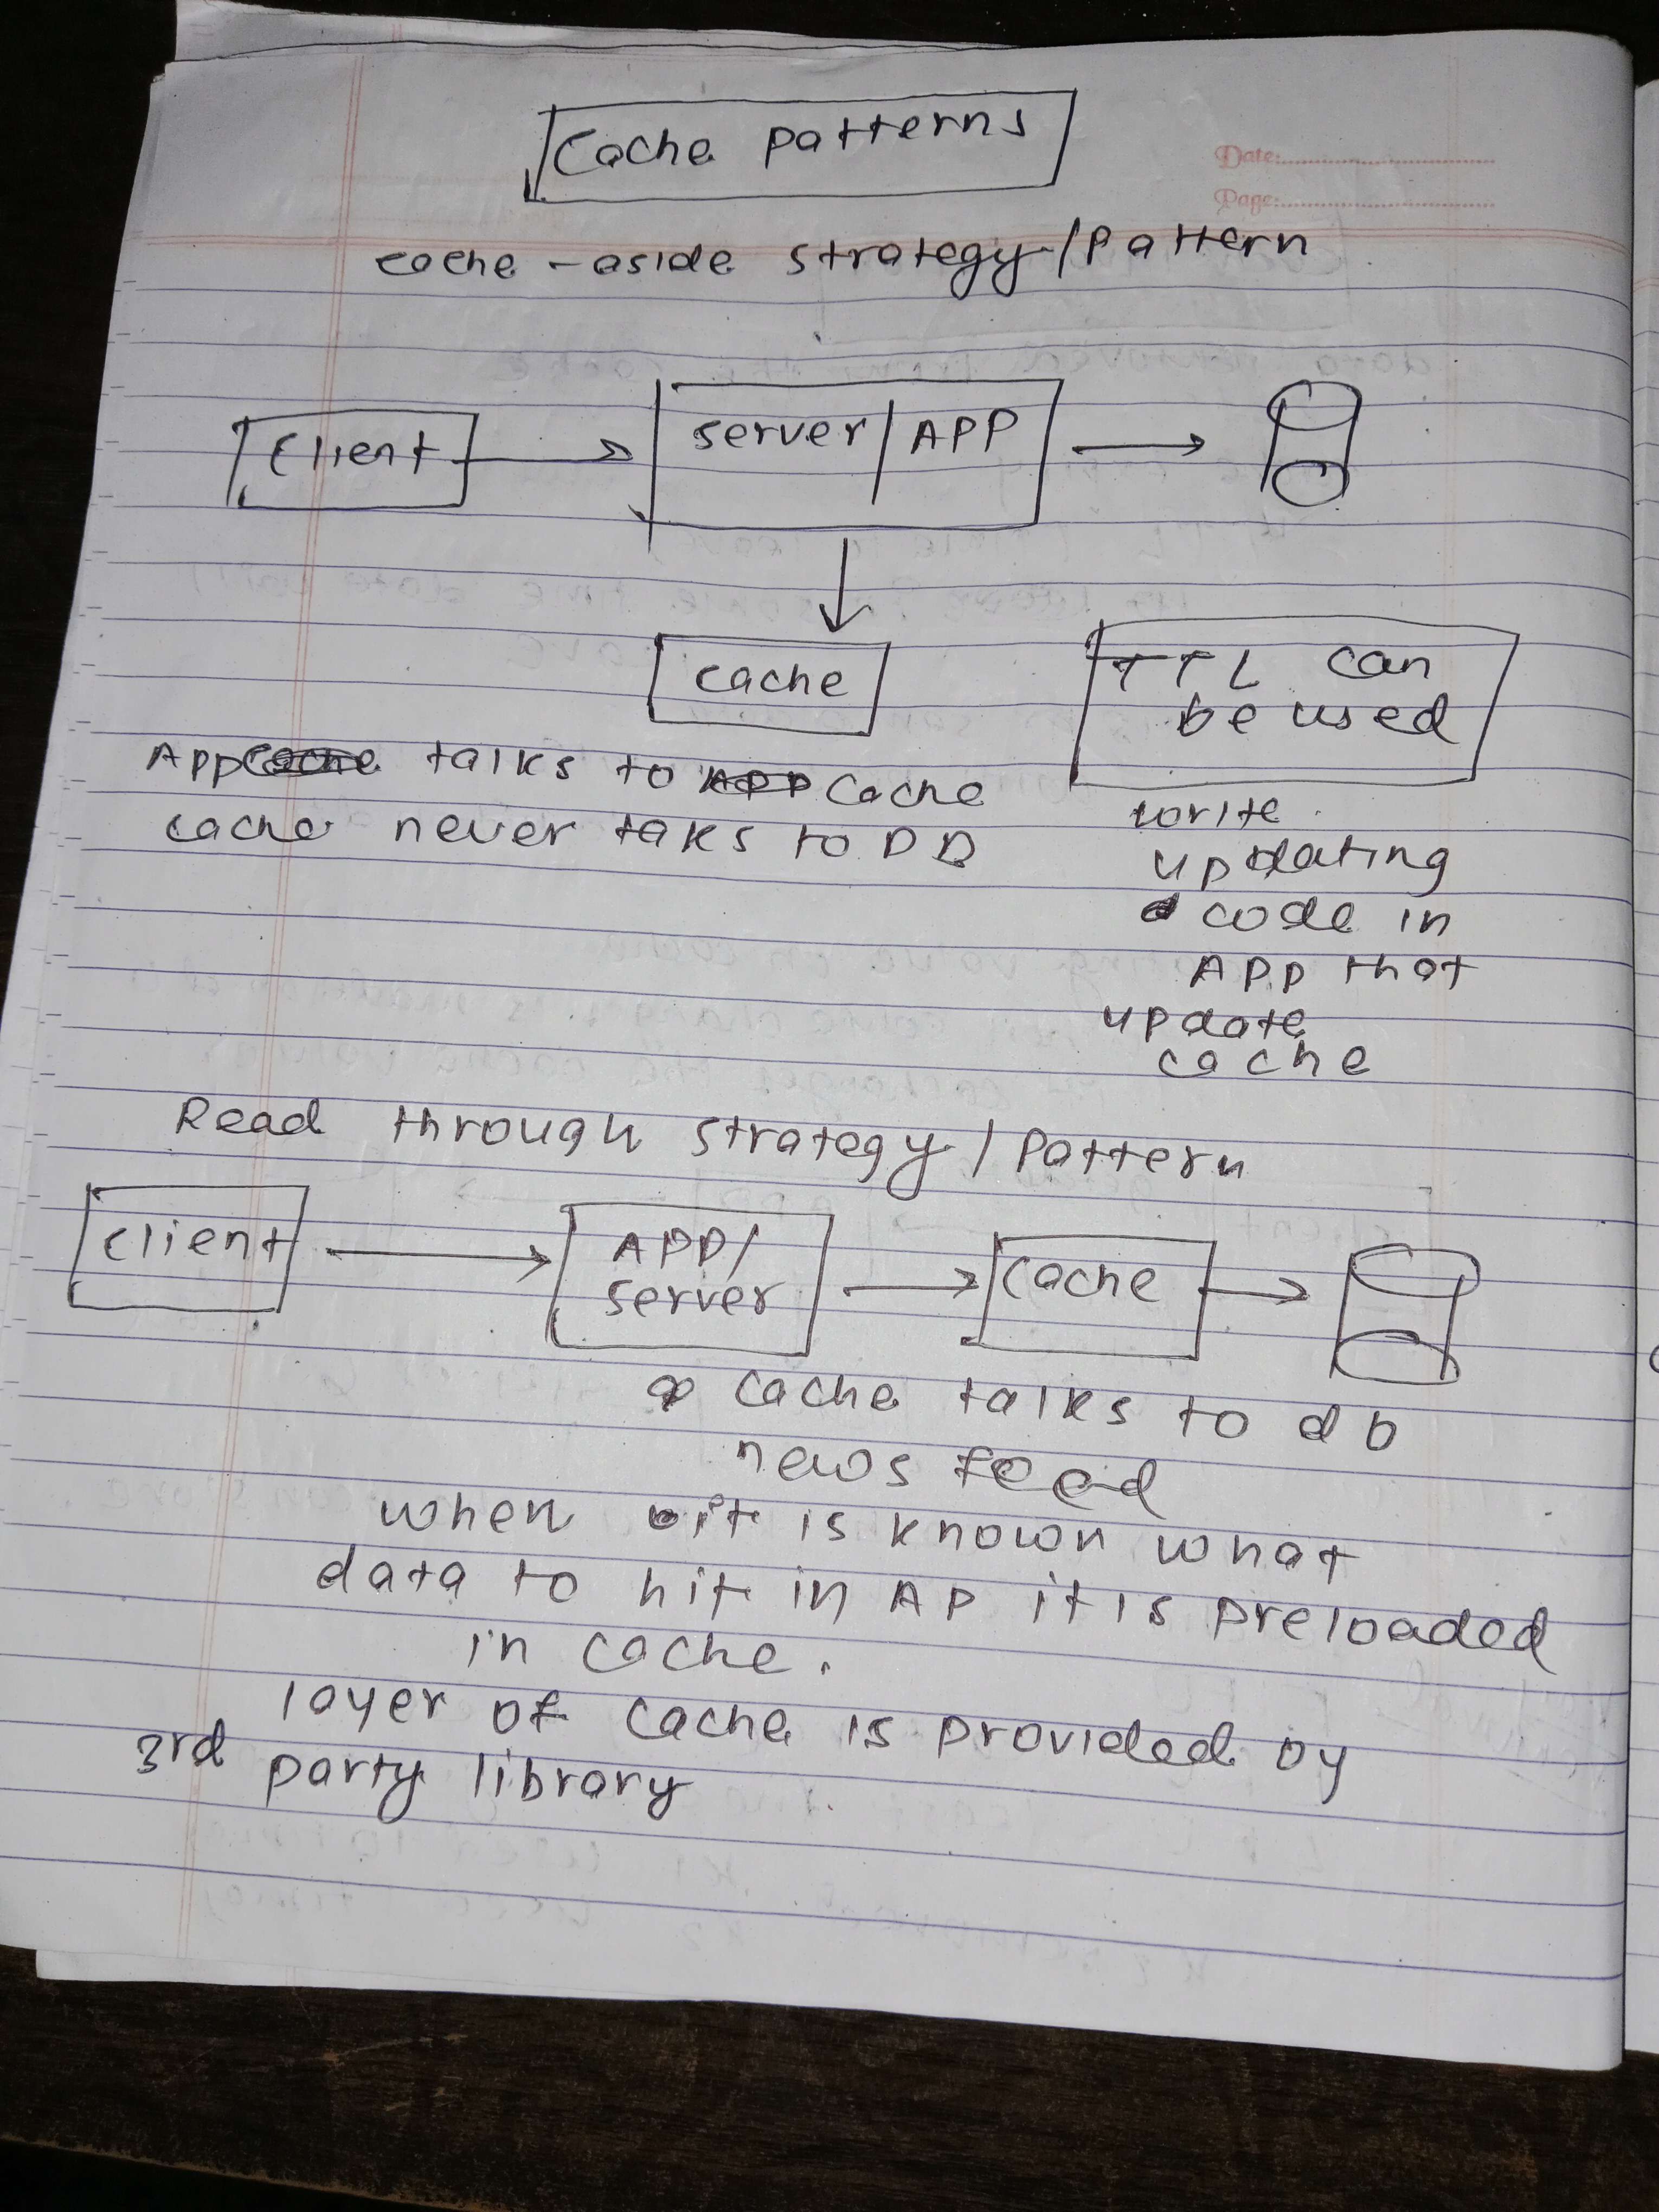 Cache patterns
Date:
Page:
cache - aside strategy/Pattern
Client
server/APP
cache
TTL can
be used
App talks to Cache
cache never taks to DB
write
updating
code in
App that
update
cache
Read through strategy/Pattern
client
APP/
server
Cache
Cache talks to db
news feed
when it is known what
data to hit in AP it is preloaded
in cache.
layer of cache is provided by
3rd party library